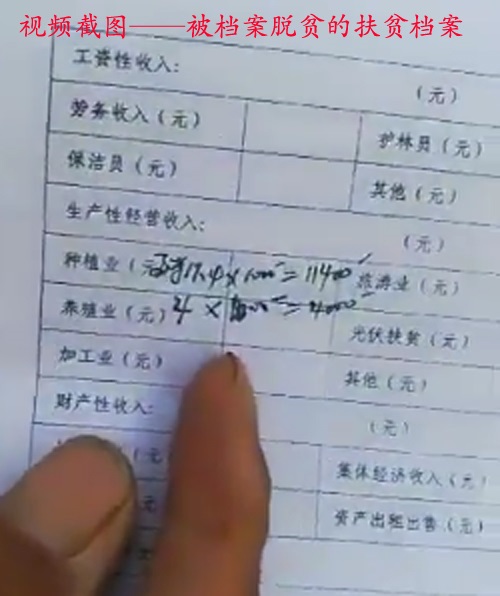 视频截图——被档案脱贫的扶贫档案
工资性收入: (元)
劳务收入(元) 护林员(元)
保洁员(元) 其他(元)
生产性经营收入: (元)
种植业(元) 11.4×1000=11400 旅游业(元)
养殖业(元) 4× =4000 光伏扶贫(元)
加工业(元) 其他(元)
财产性收入: (元)
(元) 集体经济收入(元)
(元) 资产出租出售(元)